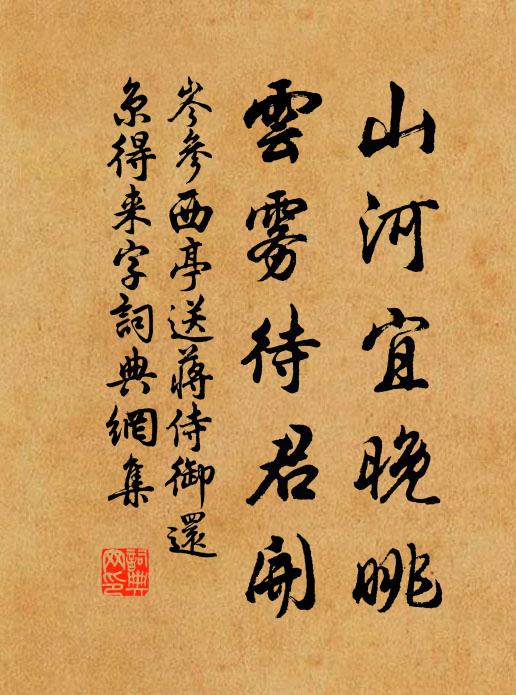 山河宜晚眺
雲霧待君開
岑參西亭送蔣侍御還
京得来字詞典網集
詞典網印